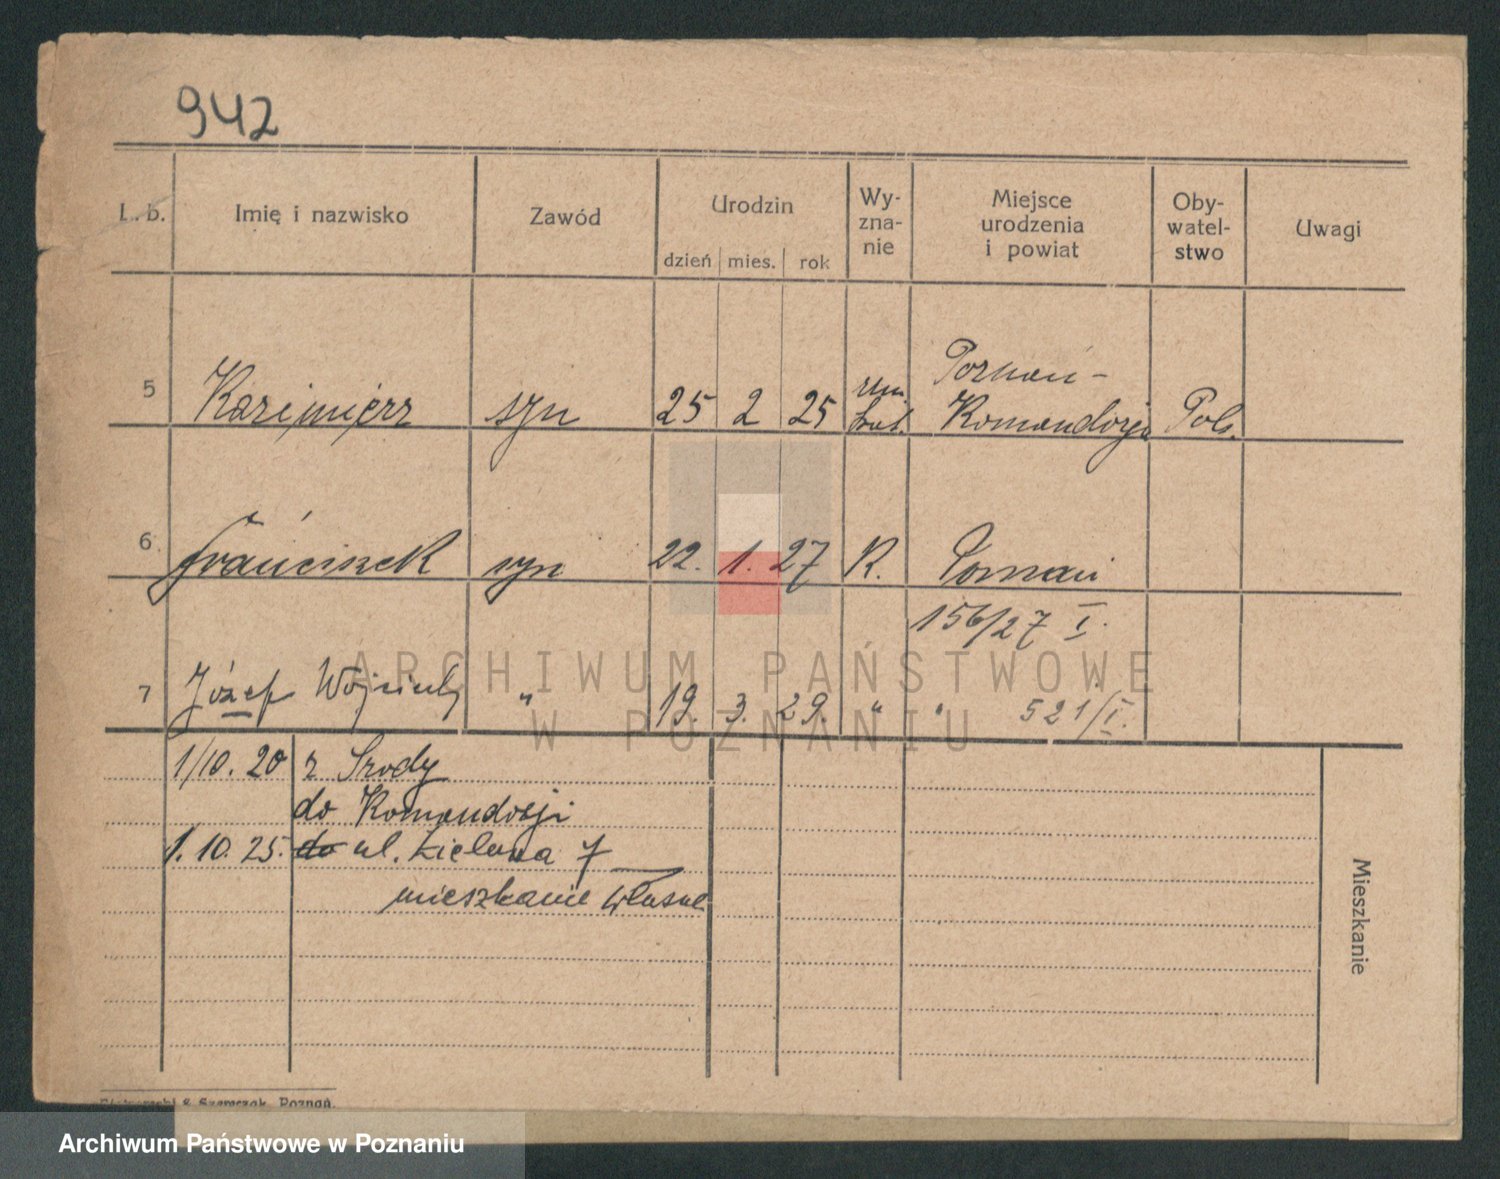 942
L. b. Imię i nazwisko Zawód Urodzin Wy-zna-nie Miejsce urodzenia i powiat Oby-watel-stwo Uwagi
dzień mies. rok
5 Kazimierz syn 25 2 25 rzym. kat. Poznań- Komandorja Pols.
6 Franciszek syn 22. 1. 27 R. Poznań
156/27 I.
7 Józef " 19. 3. 29. " " 521/I.
1/10. 20 z Środy
do Komandorji
1. 10. 25. do ul. Zielona 7
mieszkanie własne
Mieszkanie
& Szewczak, Poznań.
ARCHIWUM PAŃSTWOWE
W POZNANIU
Archiwum Państwowe w Poznaniu